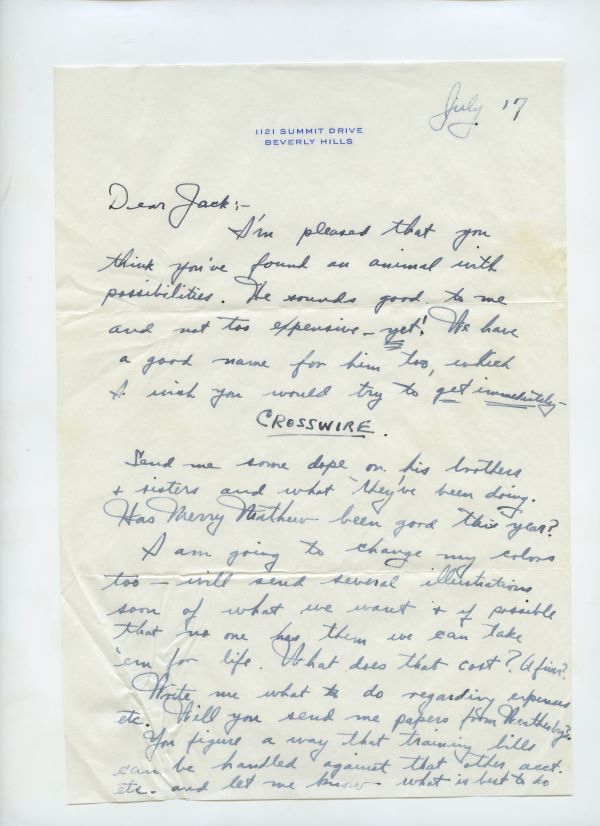 July 17
1121 SUMMIT DRIVE
BEVERLY HILLS
Dear Jack:-
I'm pleased that you
think you've found an animal with
possibilities. He sounds good to me
and not too expensive - yet! We have
a good name for him too, which
I wish you would try to get immediately -
CROSSWIRE.
Send me some dope on his brothers
& sisters and what they've been doing.
Has Merry Mathew been good this year?
I am going to change my colors
too - will send several illustrations
soon of what we want & if possible
that no one has them we can take
'em for life. What does that cost?
Write me what to do regarding expenses
etc. Will you send me papers from Weatherby?
You figure a way that training bills
can be handled against that other acct.
etc. and let me know - what is best to do